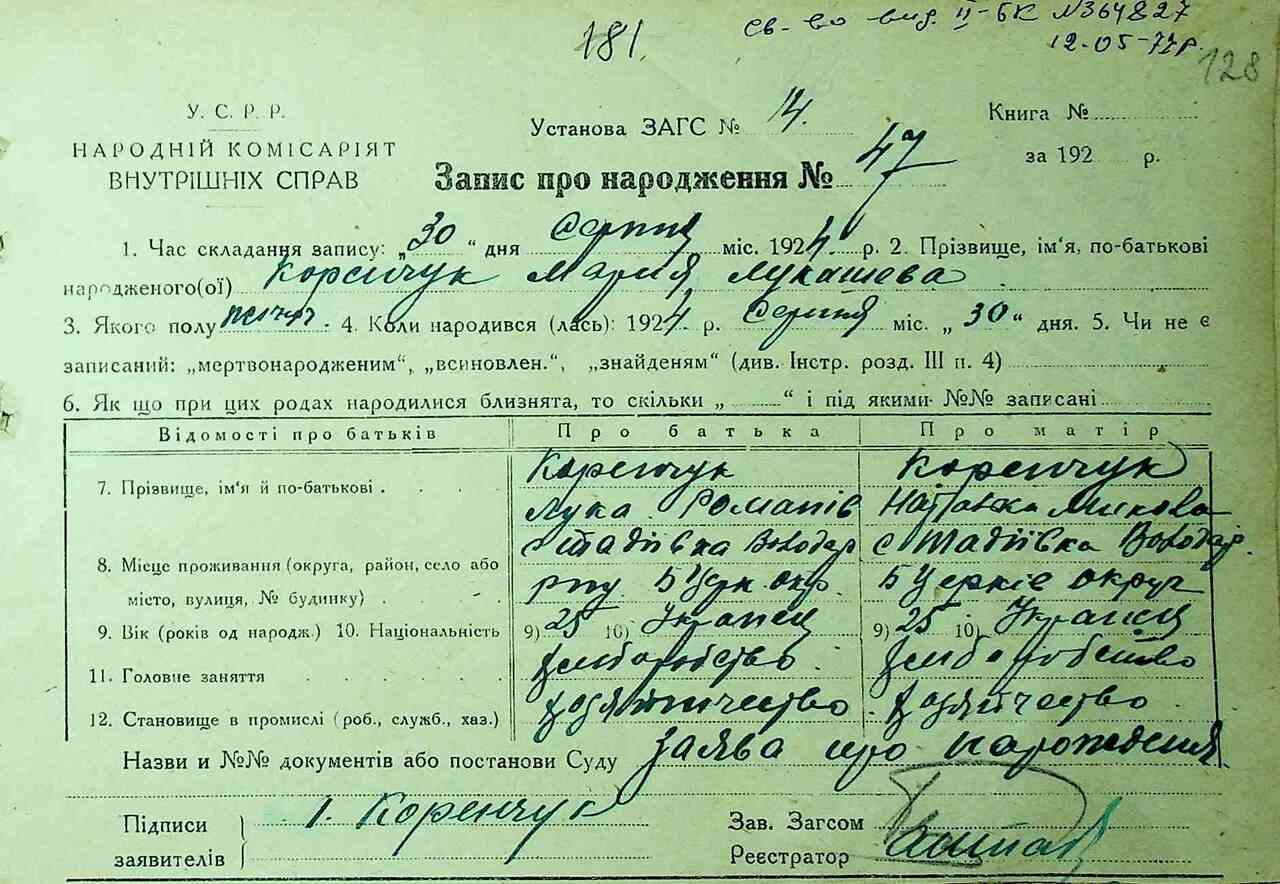 181.
св-во выд. II-БК №364827
12-05-77р.
128
У. С. Р. Р.
НАРОДНІЙ КОМІСАРІЯТ
ВНУТРІШНІХ СПРАВ
Установа ЗАГС № 14.
Книга №
за 192 р.
Запис про народження № 47
1. Час складання запису: „30“ дня Серпня міс. 1924. р. 2. Прізвище, ім'я, по-батькові
народженого(ої) Коренчук Мария Лукашева
3. Якого полу жіноч. 4. Коли народився (лась): 1924. р. Серпня міс. „30“ дня. 5. Чи не є
записаний: „мертвонародженим“, „всиновлен.“, „знайденям“ (див. Інстр. розд. III п. 4)
6. Як що при цих родах народилися близнята, то скільки „ “ і під якими №№ записані
Відомості про батьків Про батька Про матір
7. Прізвище, ім'я й по-батькові Коренчук Коренчук
Лука Романів
8. Місце проживання (округа, район, село або с Володар с Володар.
місто, вулиця, № будинку) Б Церк. окр. Б Церків округ
9. Вік (років од народж.) 10. Національність 9) 25 10) Укранец 9) 25 10) Укранец
11. Головне заняття
12. Становище в промислі (роб., служб., хаз.)
Назви и №№ документів або постанови Суду заява про нарождения
Підписи
заявителів
Коренчук
Зав. Загсом
Реєстратор